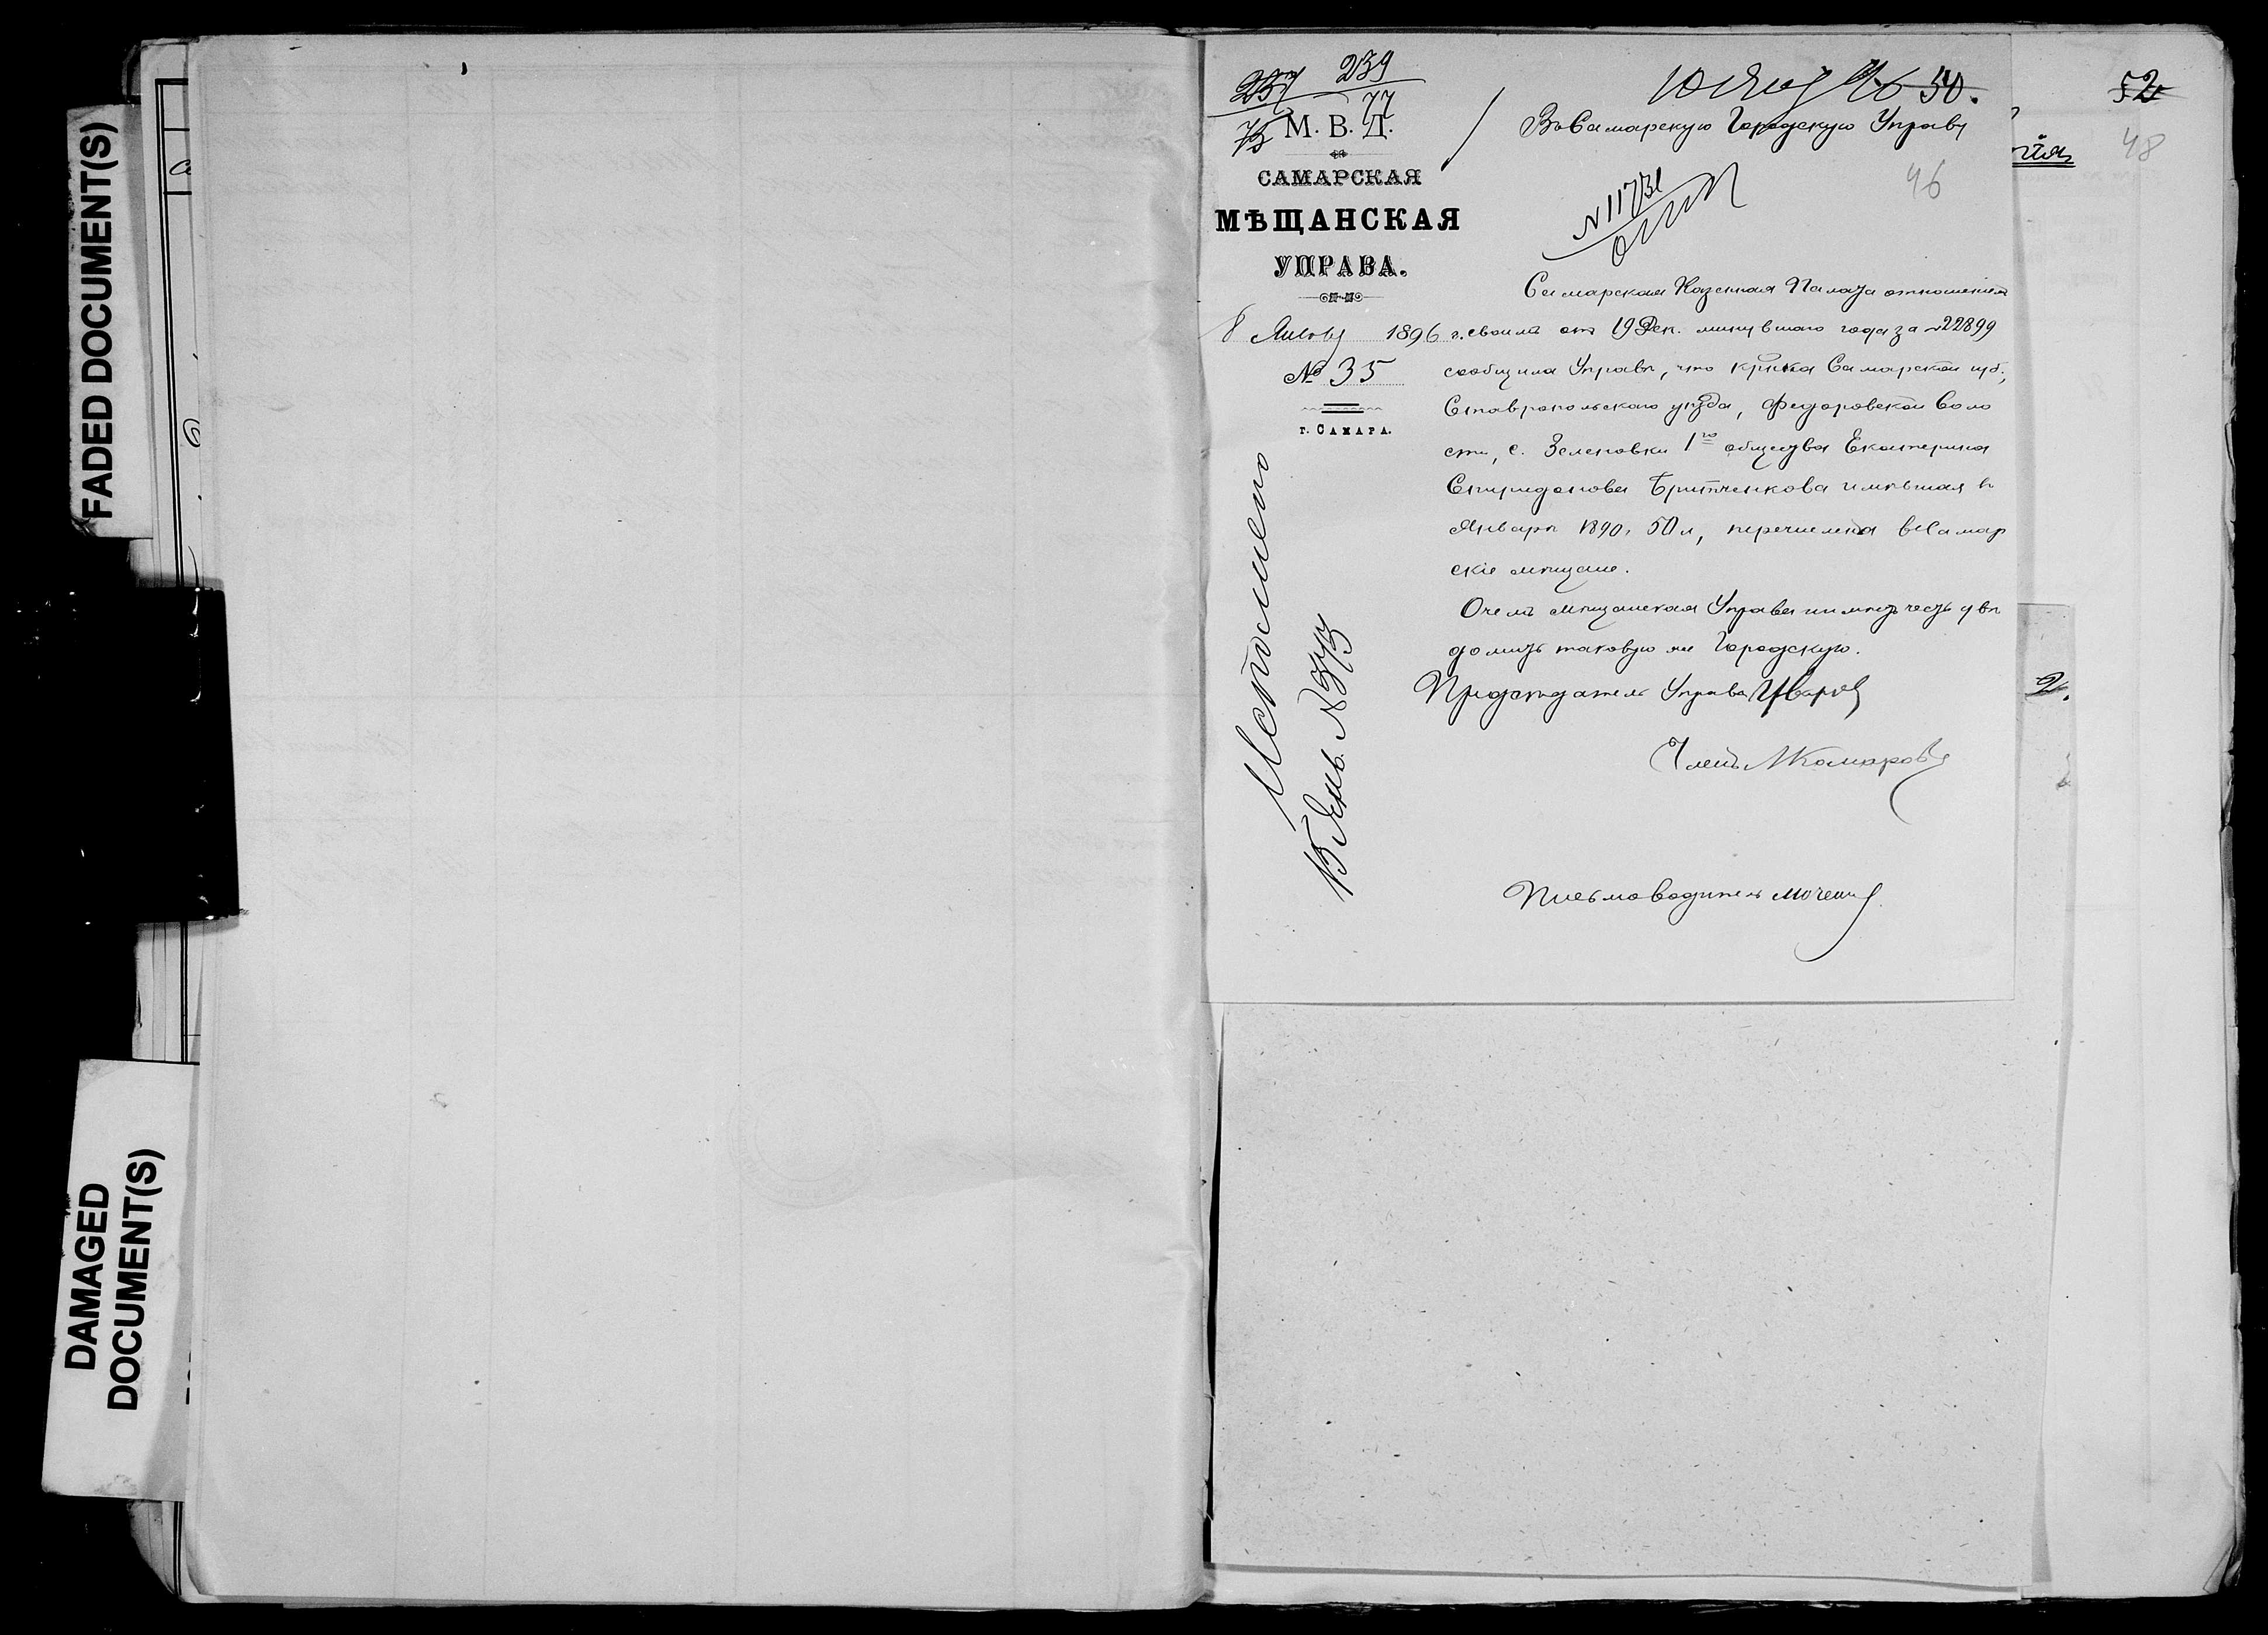 FADED DOCUMENT(S)
DAMAGED
DOCUMENT(S)
237 239
75 77
М. В. Д.
САМАРСКАЯ
МѢЩАНСКАЯ
УПРАВА.
8 Января 1896 г.
№ 35
г. САМАРА.
Исполнено
15 Янв. №
10 Янв 96 50.
Въ Самарскую Городскую Управу
46
N 11731
Самарская Казенная Палата отношеніем
своимъ отъ 19 Дек. минувшаго года за № 22899
сообщила Управѣ, что кр-ка Самарской губ.,
Ставропольскаго уѣзда, Федоровской воло
сти, с. Зеленовки 1го общества Екатерина
Спиридонова Бритченкова имѣвшая в
Январѣ 1890. 50 л, перечислена в Самар
скіе мѣщане.
О чемъ мѣщанская Управа имѣетъ честь увѣ
домить таковую же Городскую.
Предсѣдатель Управы Уваров
Членъ Комаровъ
Письмоводитель
52
48
2.